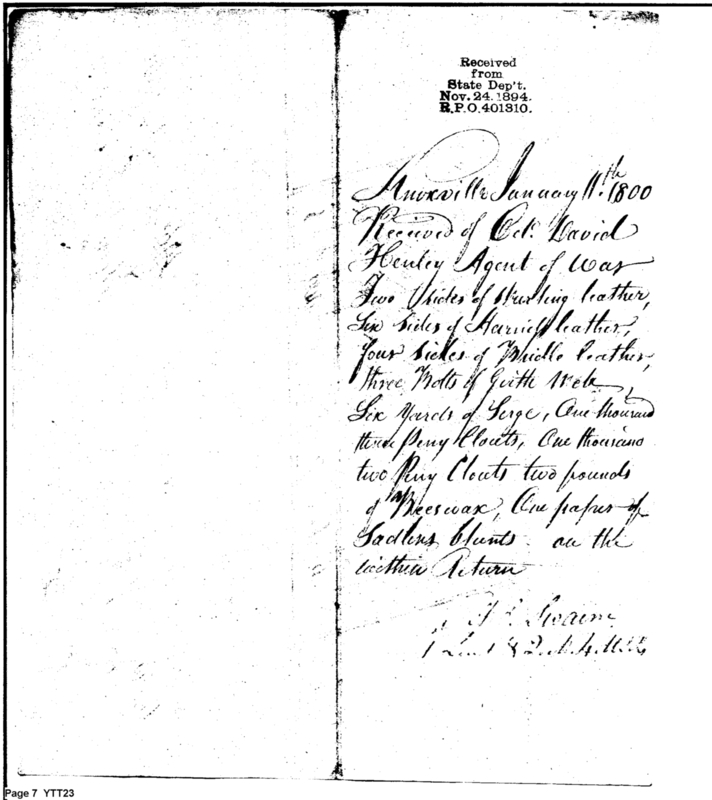 Received
from
State Dep't.
Nov. 24. 1894.
R.P.O. 401310.
Knoxville January 11.th 1800
Received of Col. David
Henley Agent of War
Two sides of leather,
Six sides of Harness leather,
four sides of Bridle leather,
three Bolts of Girth Web,
Six Yards of Serge, One thousand
three Peny Clouts, One thousand
two Peny Clouts two pounds
of Beeswax, One paper of
Sadlers blunts on the
within Return
Page 7 YTT23